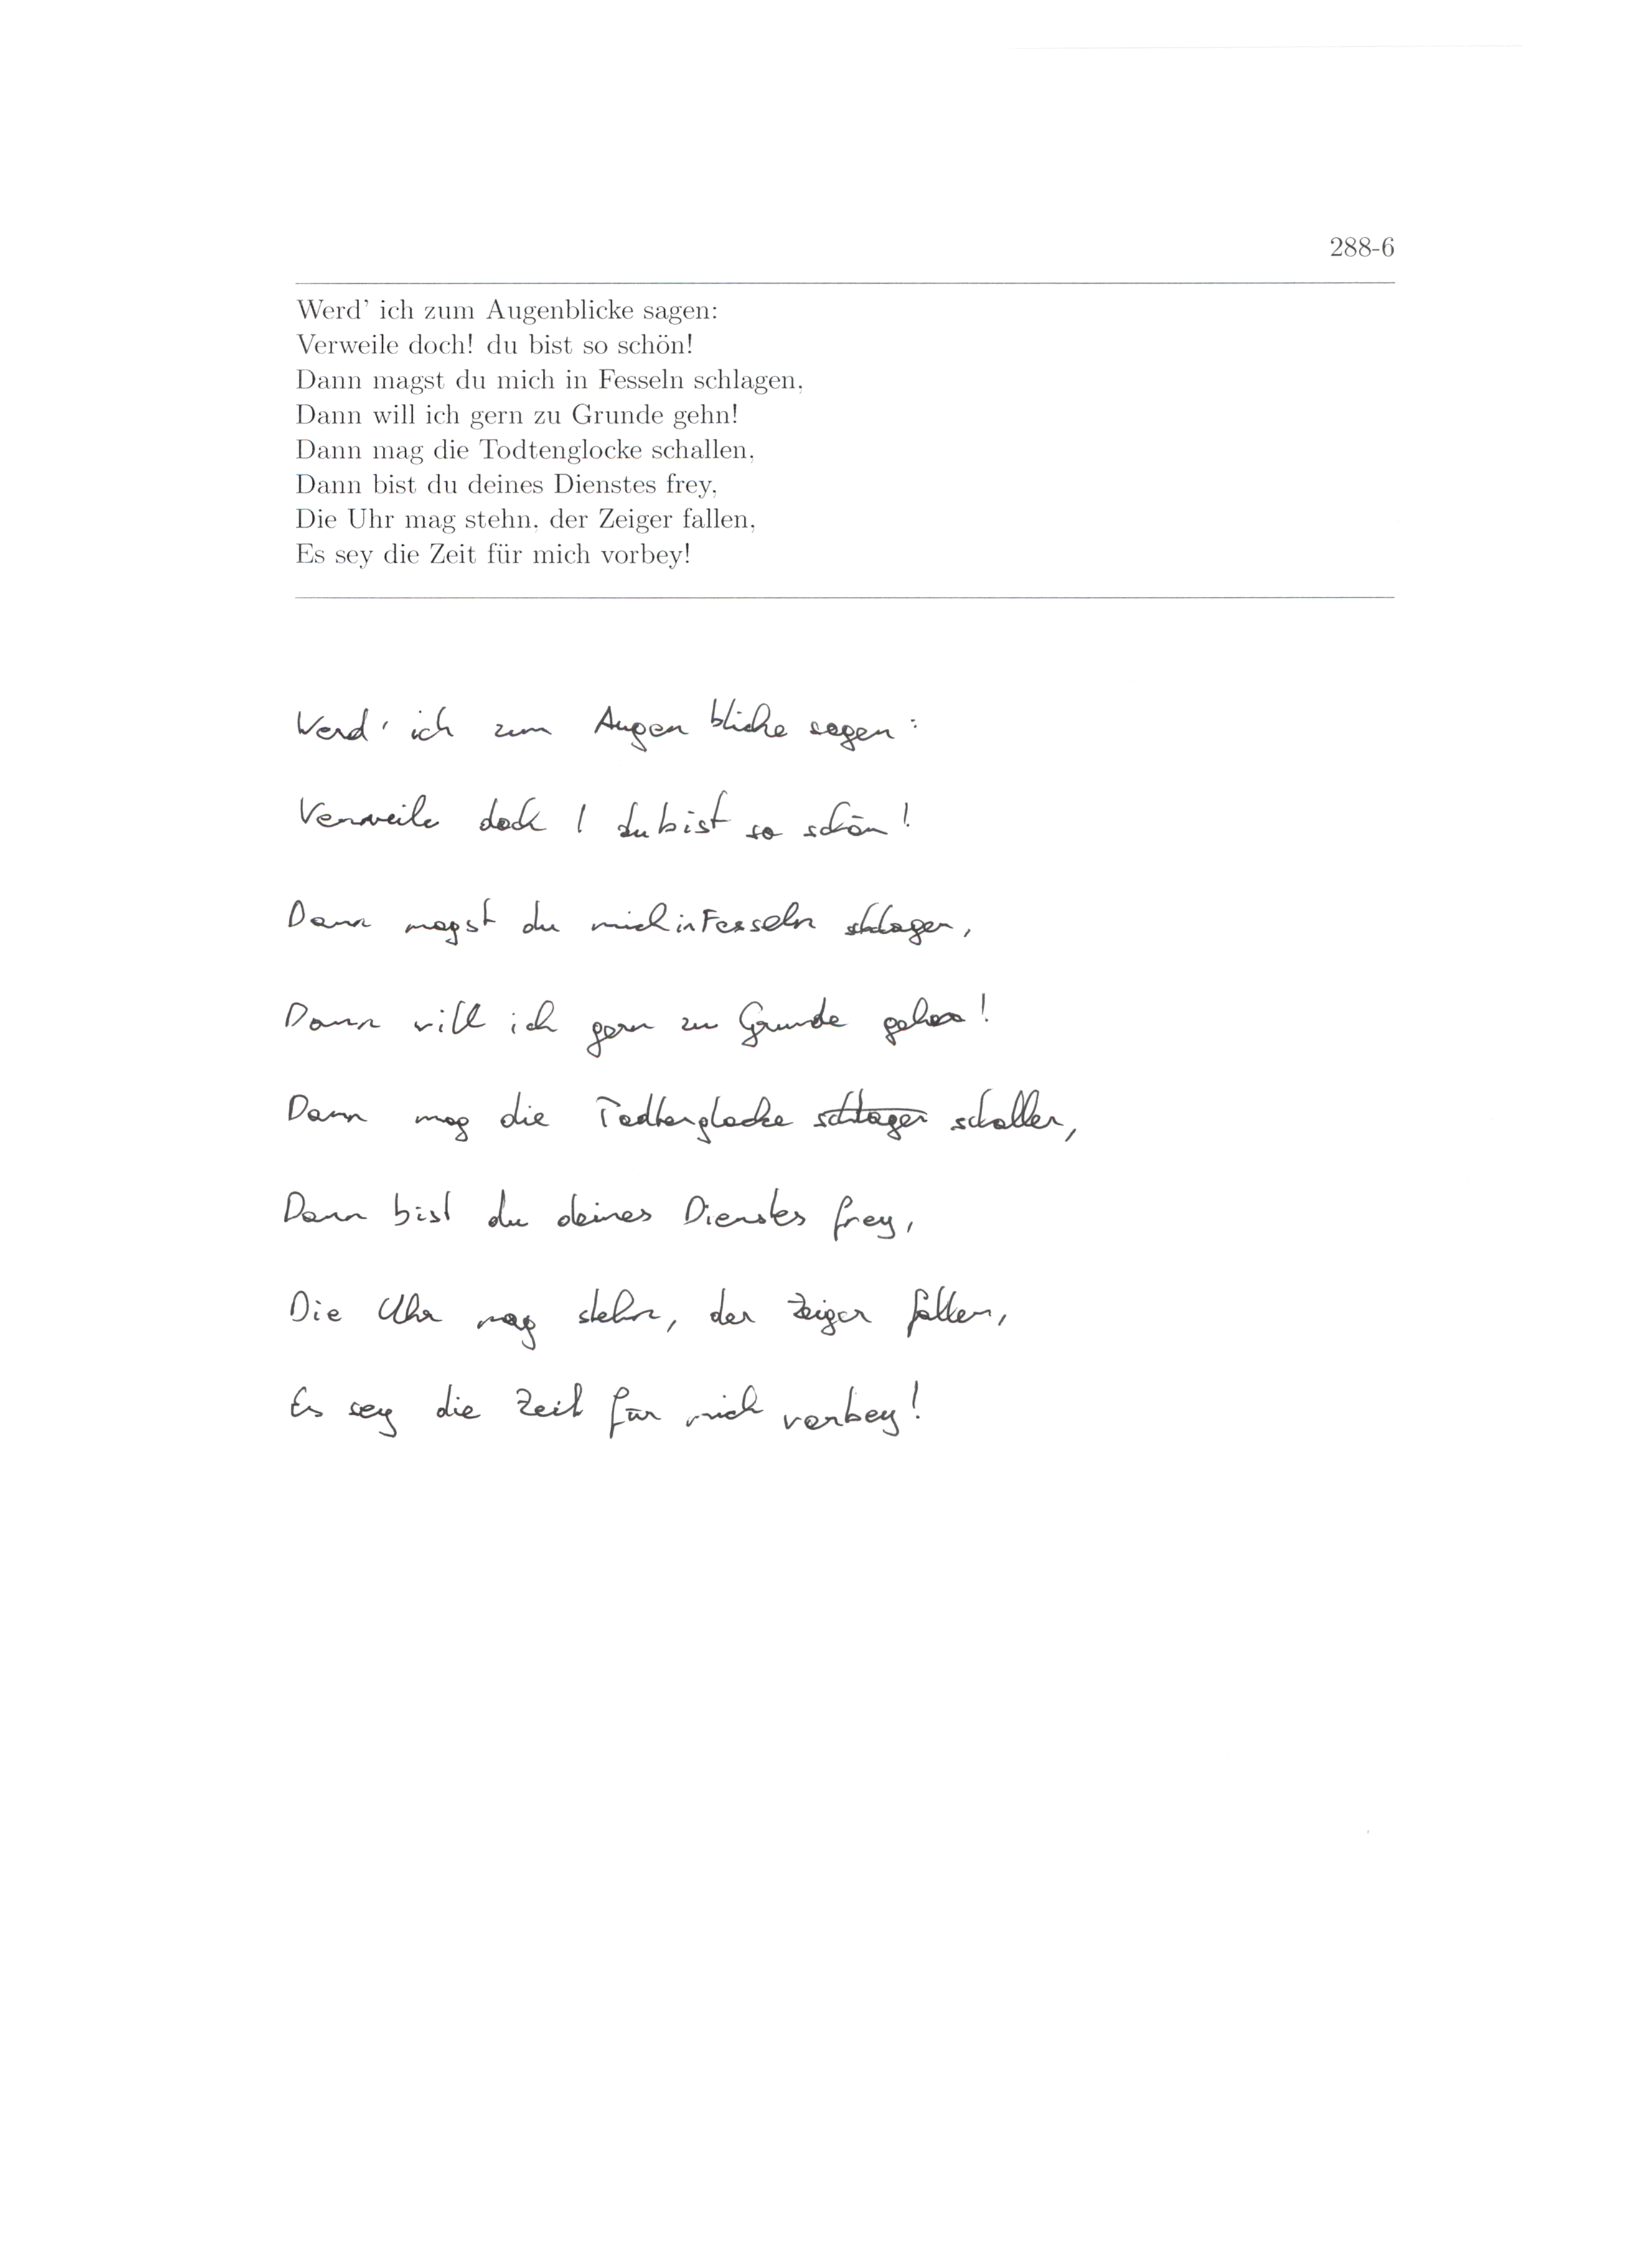 288-6
Werd' ich zum Augenblicke sagen:
Verweile doch! du bist so schön!
Dann magst du mich in Fesseln schlagen,
Dann will ich gern zu Grunde gehn!
Dann mag die Todtenglocke schallen,
Dann bist du deines Dienstes frey,
Die Uhr mag stehn, der Zeiger fallen,
Es sey die Zeit für mich vorbey!
Werd' ich zum Augen blicke sagen:
Verweile doch! du bist so schön!
Dann magst du mich in Fesseln schlagen,
Dann will ich gern zu Grunde gehen!
Dann mag die Todtenglocke schlagen schallen,
Dann bist du deines Dienstes frey,
Die Uhr mag stehn, der Zeiger fallen,
Es sey die Zeit für mich vorbey!